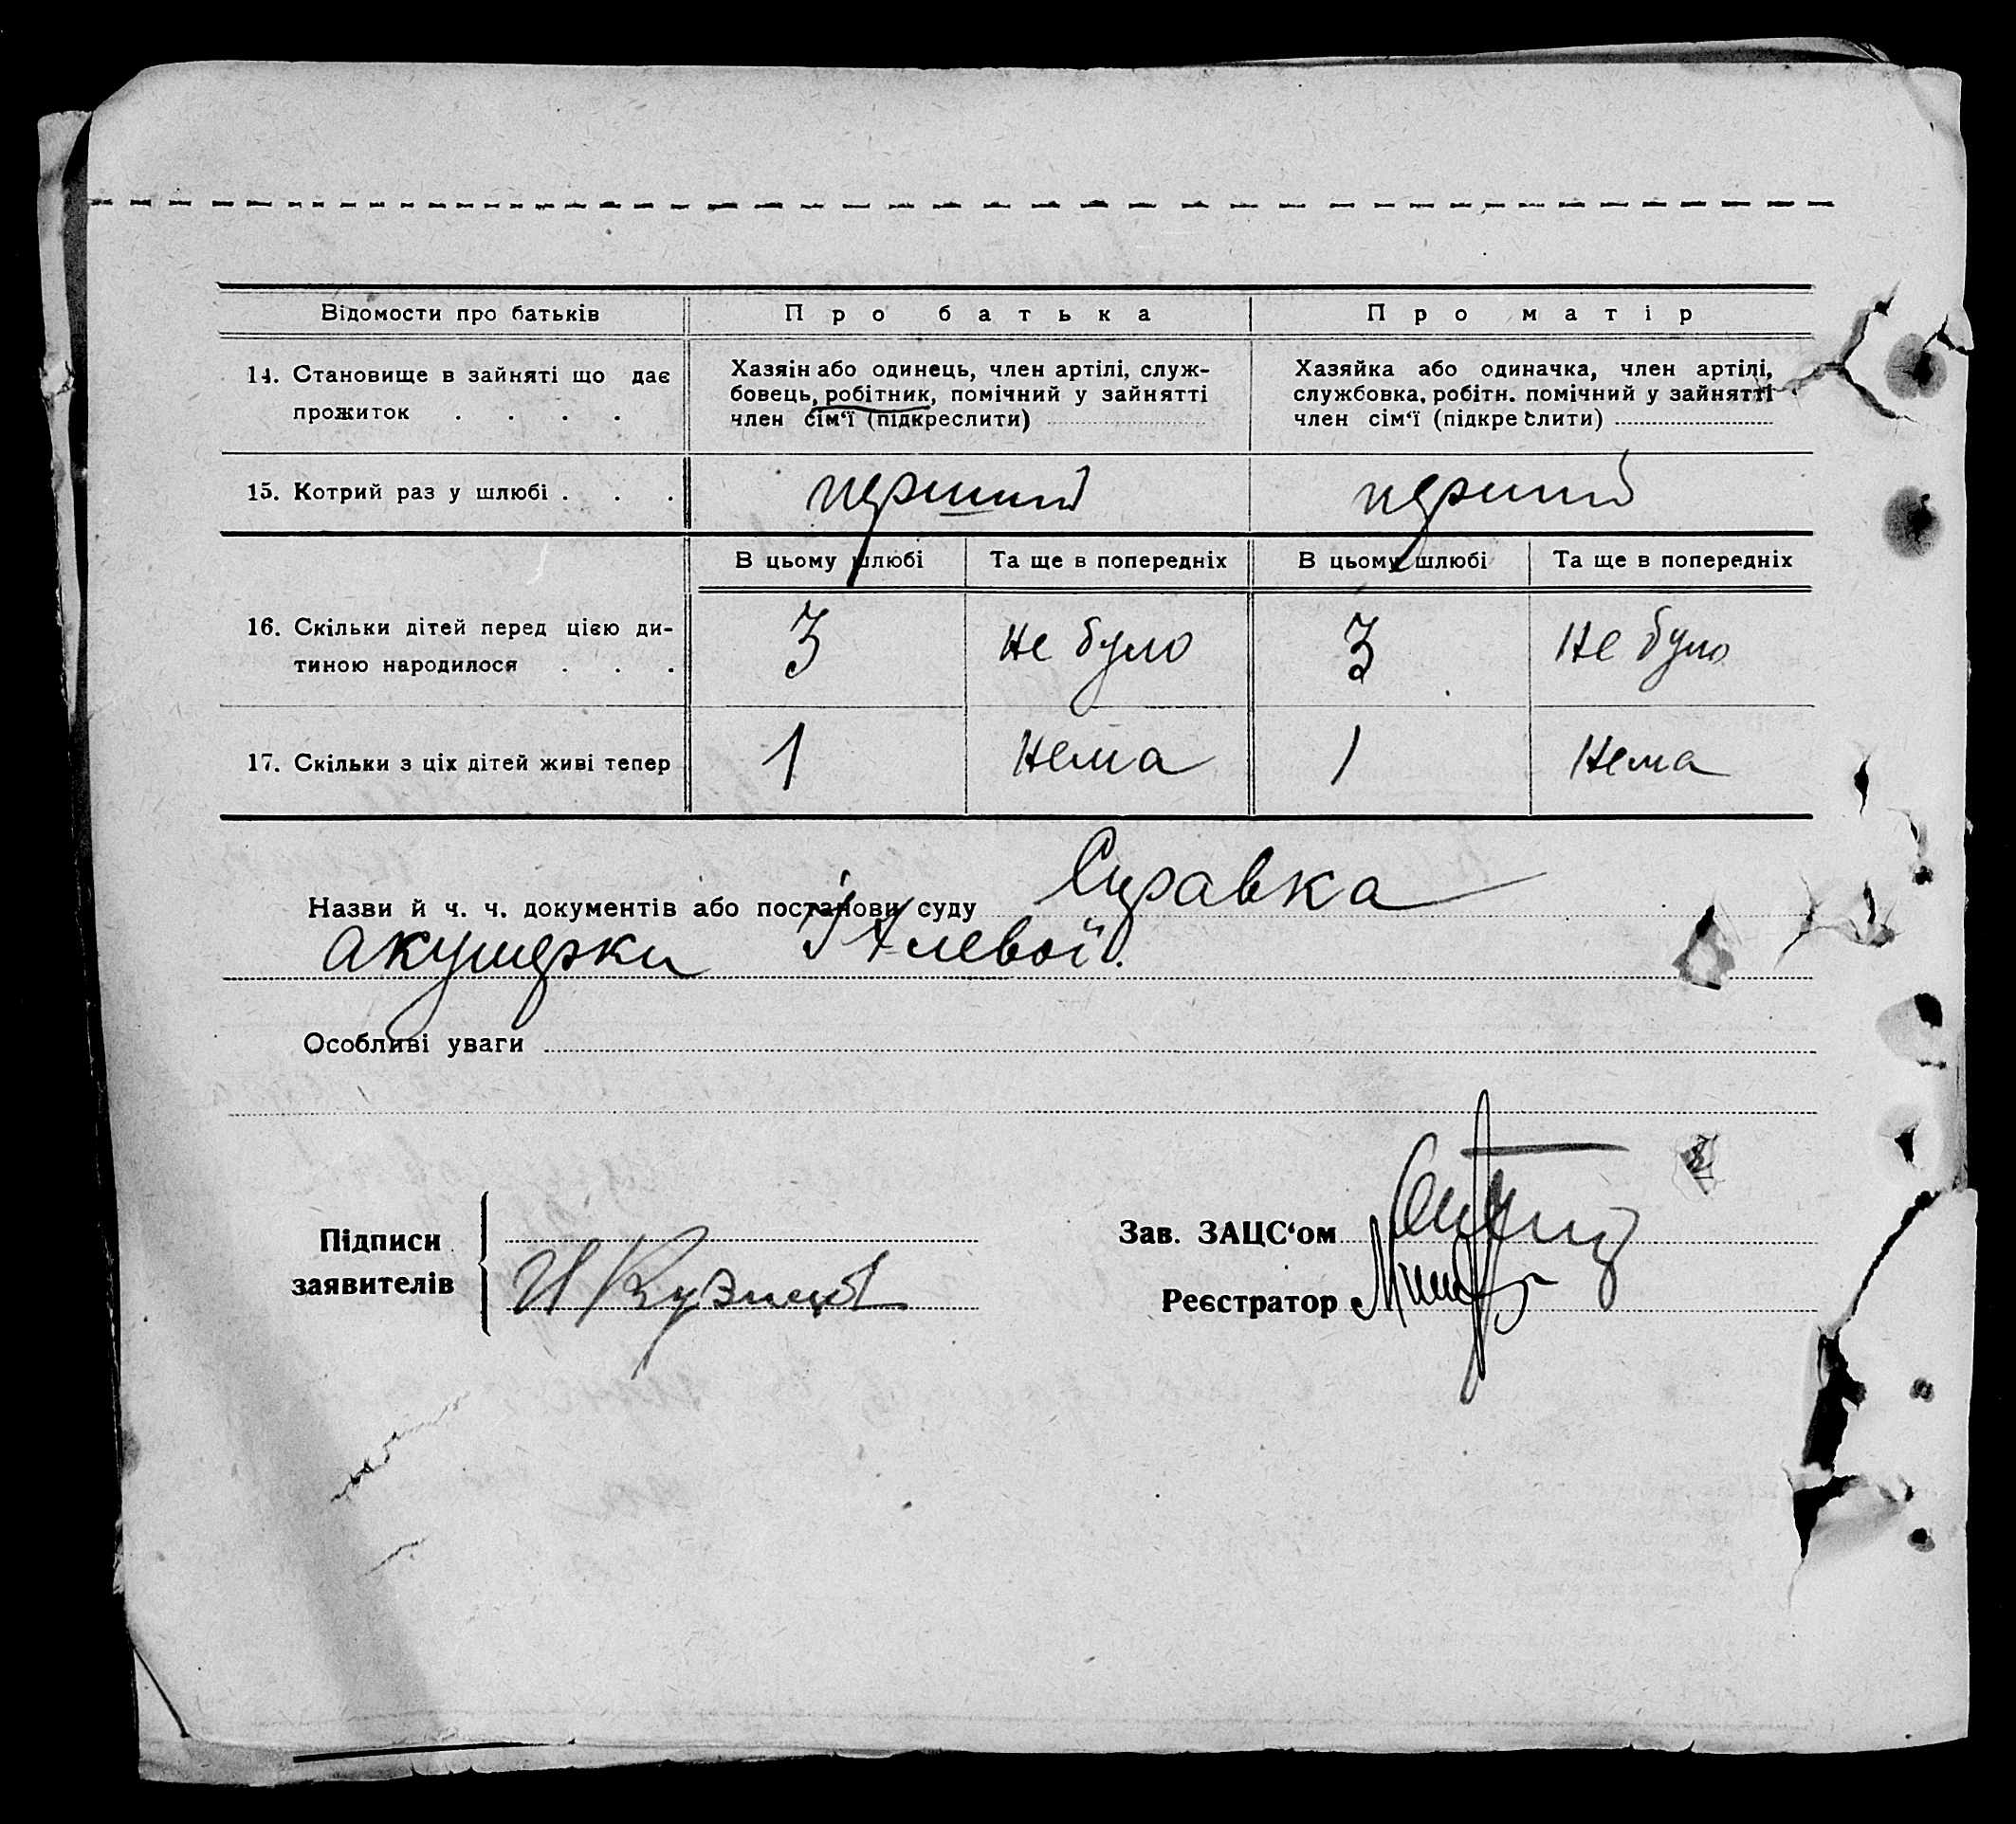 Відомости про батьків
Про батька
Про матір
14. Становище в зайняті що дає
прожиток . . . .
Хазяін або одинець, член артілі, служ-
бовець, робітник, помічний у зайнятті
член сім'ї (підкреслити)
Хазяйка або одиначка, член артілі,
службовка, робітн. помічний у зайнятті
член сім'ї (підкреслити)
15. Котрий раз у шлюбі . . .
перший
перший
В цьому шлюбі
Та ще в попередніх
В цьому шлюбі
Та ще в попередніх
16. Скільки дітей перед цією ди-
тиною народилося . . .
3
Не було
3
Не було
17. Скільки з ціх дітей живі тепер
1
Нема
1
Нема
Назви й ч. ч. документів або постанови суду Справка
акушерки
Особливі уваги
Підписи
заявителів
И Кузнецов
Зав. ЗАЦС'ом
Реєстратор